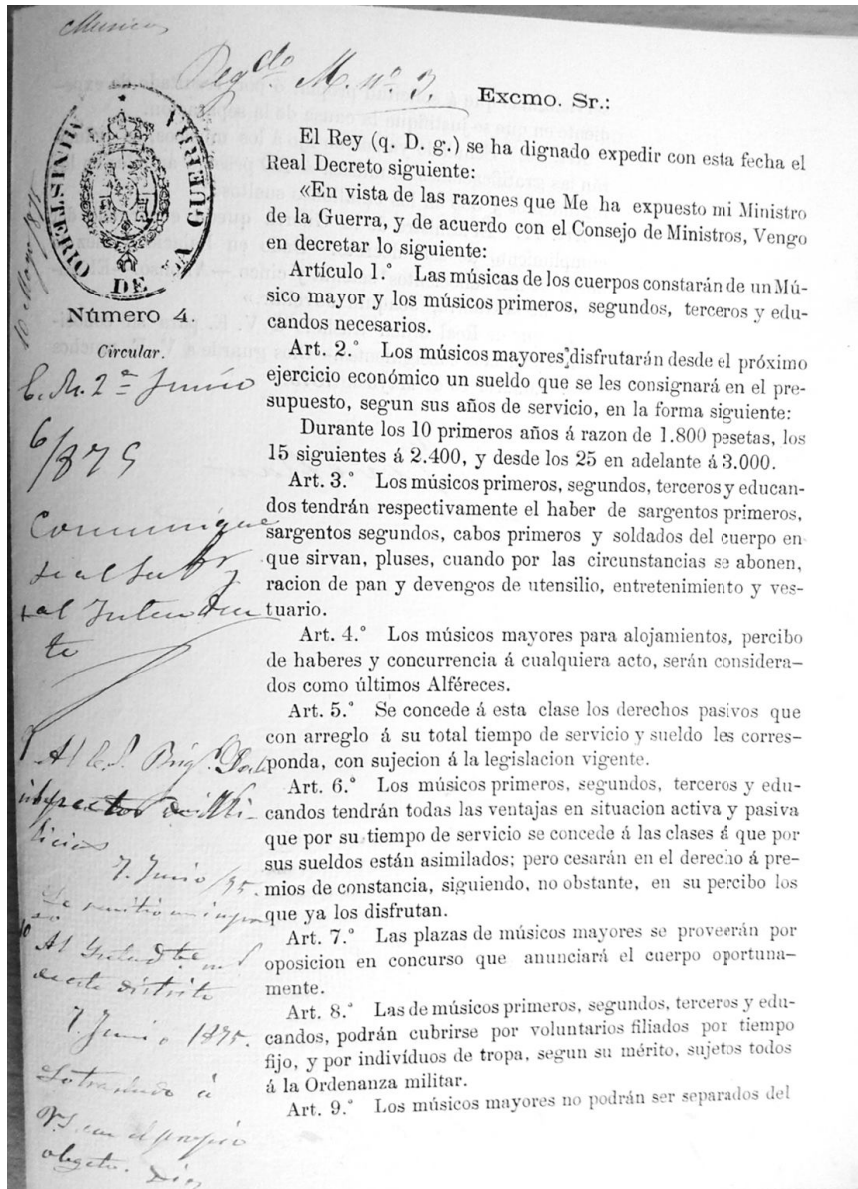 Musicas
M. nº 3.
MINISTERIO DE LA GUERRA
10 Mayo 1875
Número 4.
Circular.
C. M. 2ª Junio
6/875
Comuníque
se al Sub y
al Intenden
te
Al
7. Junio /75.
Se remitió un
Al
de este distrito
7 Junio 1875.
Lo traslado á
V.S. con el propio
objeto. Dios
Excmo. Sr.:
El Rey (q. D. g.) se ha dignado expedir con esta fecha el
Real Decreto siguiente:
«En vista de las razones que Me ha expuesto mi Ministro
de la Guerra, y de acuerdo con el Consejo de Ministros, Vengo
en decretar lo siguiente:
Artículo 1.º Las músicas de los cuerpos constarán de un Mú-
sico mayor y los músicos primeros, segundos, terceros y edu-
candos necesarios.
Art. 2.º Los músicos mayores disfrutarán desde el próximo
ejercicio económico un sueldo que se les consignará en el pre-
supuesto, segun sus años de servicio, en la forma siguiente:
Durante los 10 primeros años á razon de 1.800 pesetas, los
15 siguientes á 2.400, y desde los 25 en adelante á 3.000.
Art. 3.º Los músicos primeros, segundos, terceros y educan-
dos tendrán respectivamente el haber de sargentos primeros,
sargentos segundos, cabos primeros y soldados del cuerpo en
que sirvan, pluses, cuando por las circunstancias se abonen,
racion de pan y devengos de utensilio, entretenimiento y ves-
tuario.
Art. 4.º Los músicos mayores para alojamientos, percibo
de haberes y concurrencia á cualquiera acto, serán considera-
dos como últimos Alféreces.
Art. 5.º Se concede á esta clase los derechos pasivos que
con arreglo á su total tiempo de servicio y sueldo les corres-
ponda, con sujecion á la legislacion vigente.
Art. 6.º Los músicos primeros, segundos, terceros y edu-
candos tendrán todas las ventajas en situacion activa y pasiva
que por su tiempo de servicio se concede á las clases á que por
sus sueldos están asimilados; pero cesarán en el derecho á pre-
mios de constancia, siguiendo, no obstante, en su percibo los
que ya los disfrutan.
Art. 7.º Las plazas de músicos mayores se proveerán por
oposicion en concurso que anunciará el cuerpo oportuna-
mente.
Art. 8.º Las de músicos primeros, segundos, terceros y edu-
candos, podrán cubrirse por voluntarios filiados por tiempo
fijo, y por indivíduos de tropa, segun su mérito, sujetos todos
á la Ordenanza militar.
Art. 9.º Los músicos mayores no podrán ser separados del